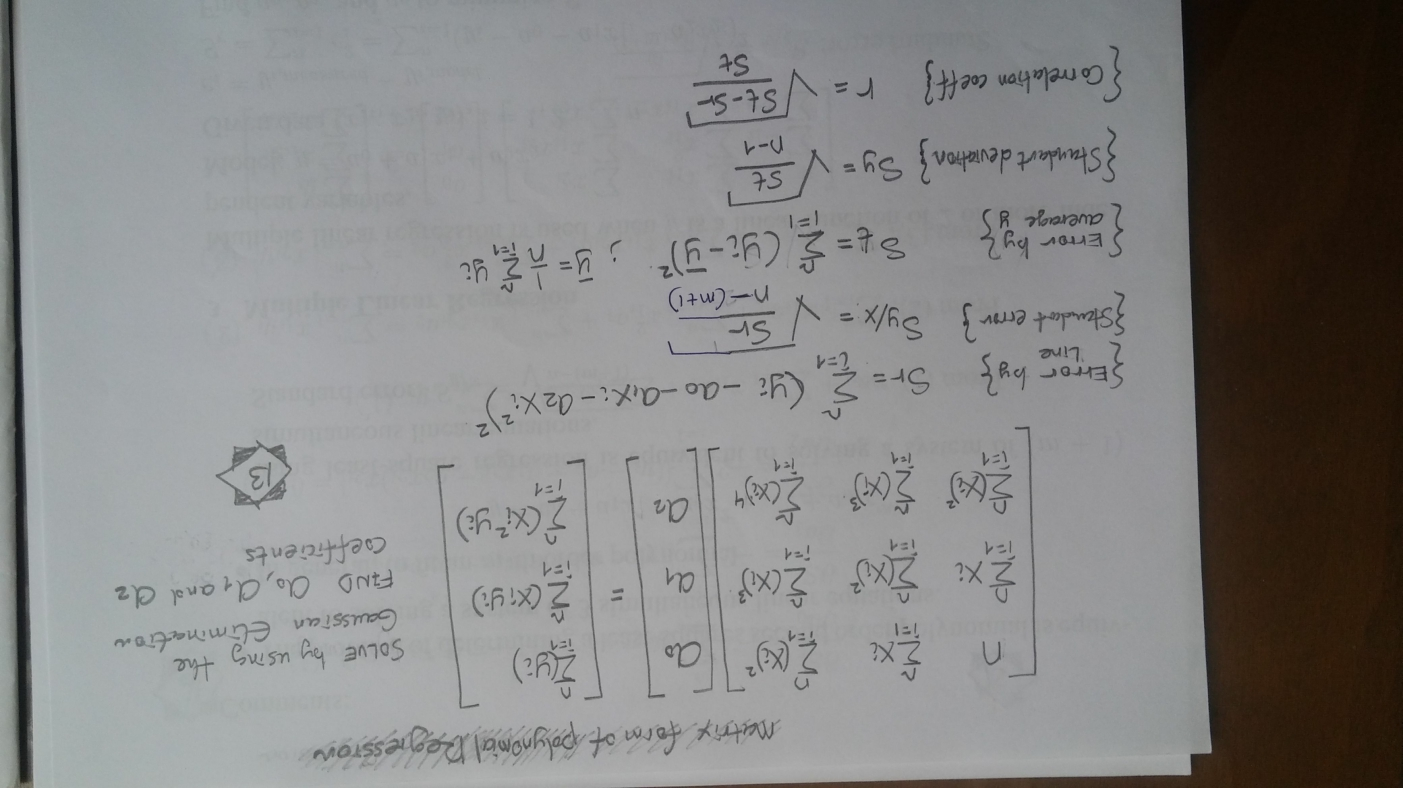 Matrix form of polynomial Regression
[ n ∑ⁿᵢ₌₁ xᵢ ∑ⁿᵢ₌₁ (xᵢ)² ] [ a₀ ] [ ∑ⁿᵢ₌₁ (yᵢ) ]
[ ∑ⁿᵢ₌₁ xᵢ ∑ⁿᵢ₌₁ (xᵢ)² ∑ⁿᵢ₌₁ (xᵢ)³ ] [ a₁ ] = [ ∑ⁿᵢ₌₁ (xᵢyᵢ) ]
[ ∑ⁿᵢ₌₁ (xᵢ)² ∑ⁿᵢ₌₁ (xᵢ)³ ∑ⁿᵢ₌₁ (xᵢ)⁴ ] [ a₂ ] [ ∑ⁿᵢ₌₁ (xᵢ²yᵢ) ]
SOLVE by using the
Gaussian Elimination
FIND a₀, a₁ and a₂
coefficients
13
{Error by Line} Sr = ∑ⁿᵢ₌₁ (yᵢ - a₀ - a₁xᵢ - a₂xᵢ²)²
{Standart error} Sy/x = √(Sr / n-(m+1))
{Error by average y} St = ∑ⁿᵢ₌₁ (yᵢ - ȳ)² ; ȳ = 1/n ∑ⁿᵢ₌₁ yᵢ
{Standart deviation} Sy = √(St / n-1)
{Correlation coeff} r = √(St-Sr / St)